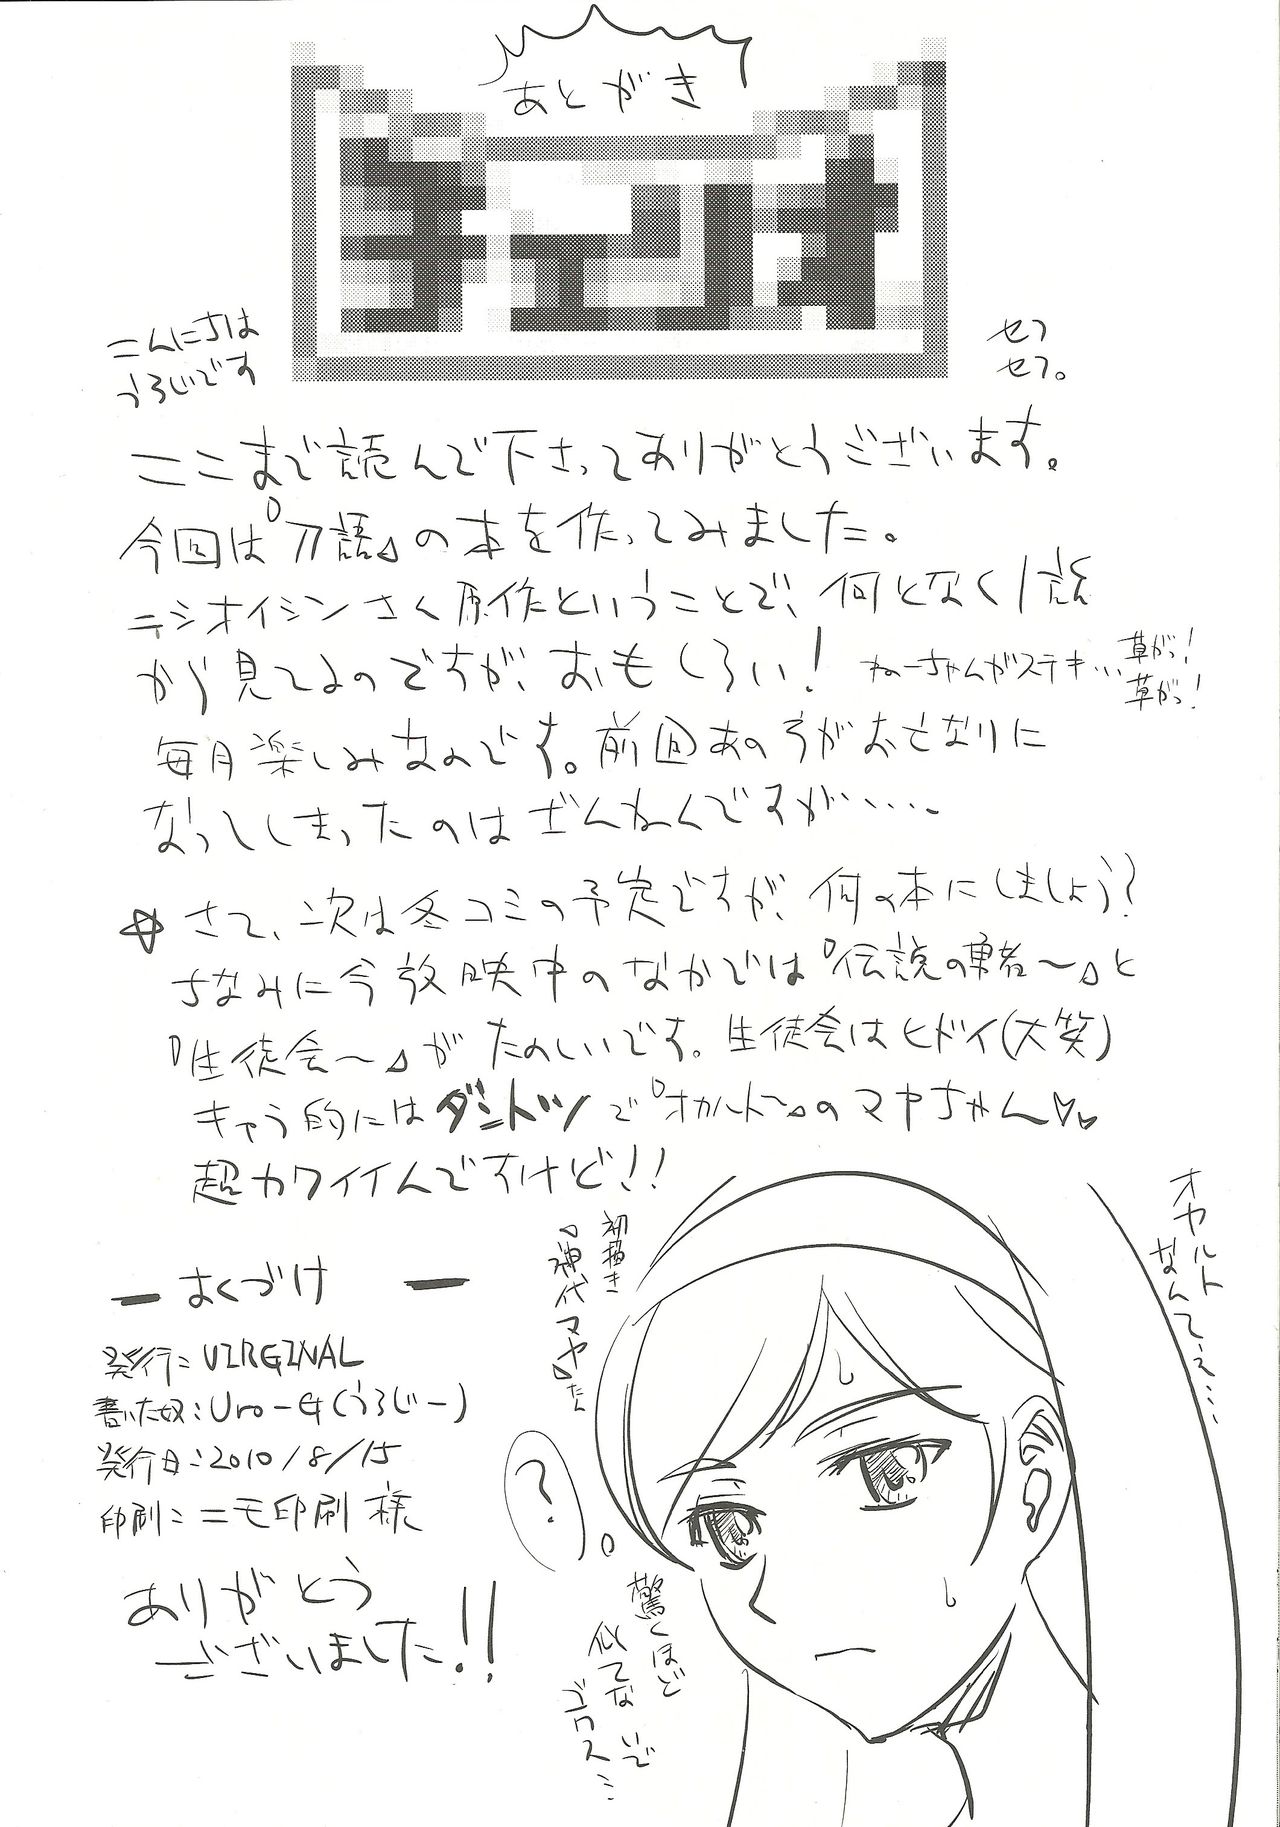 あとがき
こんにちは
うろじです
セフ
セフ。
ここまで読んで下さってありがとうございます。
今回は『刀語』の本を作ってみました。
ニシオイシンさく原作ということで、何となく1話
から見てるのですが、おもしろい!
ねーちゃんがステキ…
草がっ!
草がっ!
毎月楽しみなのです。前回あの方がおなくなりに
なってしまったのはざんねんですが……
☆さて、次は冬コミの予定ですが、何の本にしましょう?
ちなみに今放映中のなかでは『伝説の勇者~』と
『生徒会~』がたのしいです。生徒会はヒドイ(大笑)
キャラ的にはダントツで『オカルト~』のマヤちゃん♡♥
超カワイイんですけど!!
オカルト
なんてぇ…
初描き
『神代マヤ』たん
?
驚くほど
似てないで
ゴワス…
ー おくづけ ー
発行:VIRGINAL
書いた奴:Uro-G(うろじー)
発行日:2010/8/15
印刷:ニモ印刷様
ありがとう
ございました!!